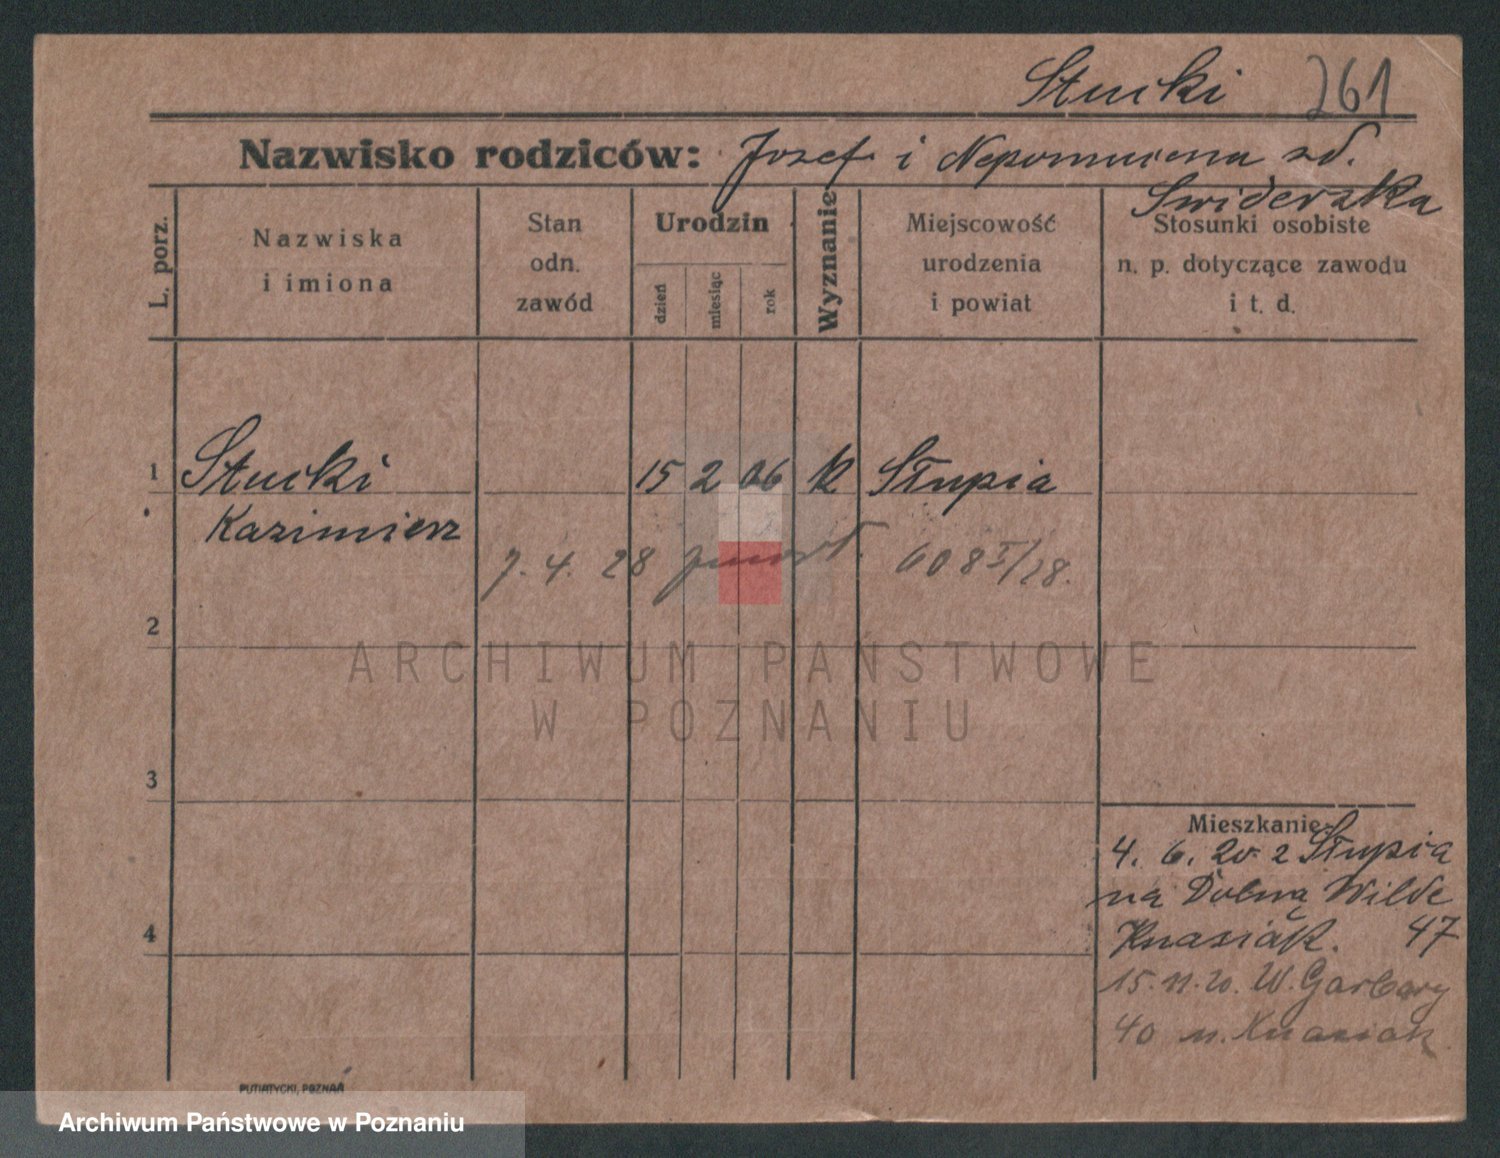 Stucki 261
Nazwisko rodziców: Jozef i Nepomucena zd.
Swiderska
L. porz.
Nazwiska
i imiona
Stan
odn.
zawód
Urodzin
dzień
miesiąc
rok
Wyznanie
Miejscowość
urodzenia
i powiat
Stosunki osobiste
n. p. dotyczące zawodu
i t. d.
1 Stucki 15 2 06 k Słupia
Kazimierz
7. 4. 28 zmarł. 608 I/28.
2
3
4
Mieszkanie
4. 6. 20 z Słupia
na Dolna Wilde
Knasiak. 47
15. 11. 20. W. Garbary
40 u. Knasiak
ARCHIWUM PAŃSTWOWE
W POZNANIU
PUTIATYCKI, POZNAŃ
Archiwum Państwowe w Poznaniu